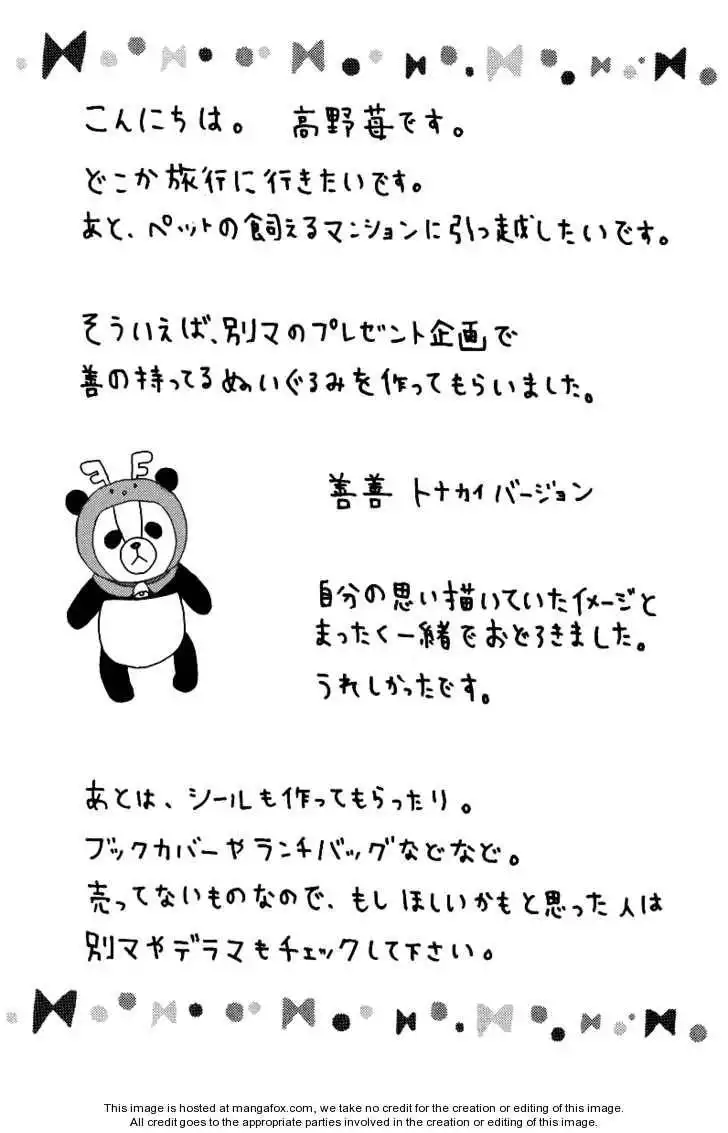 こんにちは。 高野苺です。
どこか旅行に行きたいです。
あと、ペットの飼えるマンションに引っ越したいです。
そういえば、別マのプレゼント企画で
善の持ってるぬいぐるみを作ってもらいました。
善善 トナカイバージョン
自分の思い描いていたイメージと
まったく一緒でおどろきました。
うれしかったです。
あとは、シールも作ってもらったり。
ブックカバーやランチバッグなどなど。
売ってないものなので、もしほしいかもと思った人は
別マやデラマもチェックして下さい。
This image is hosted at mangafox.com, we take no credit for the creation or editing of this image.
All credit goes to the appropriate parties involved in the creation or editing of this image.